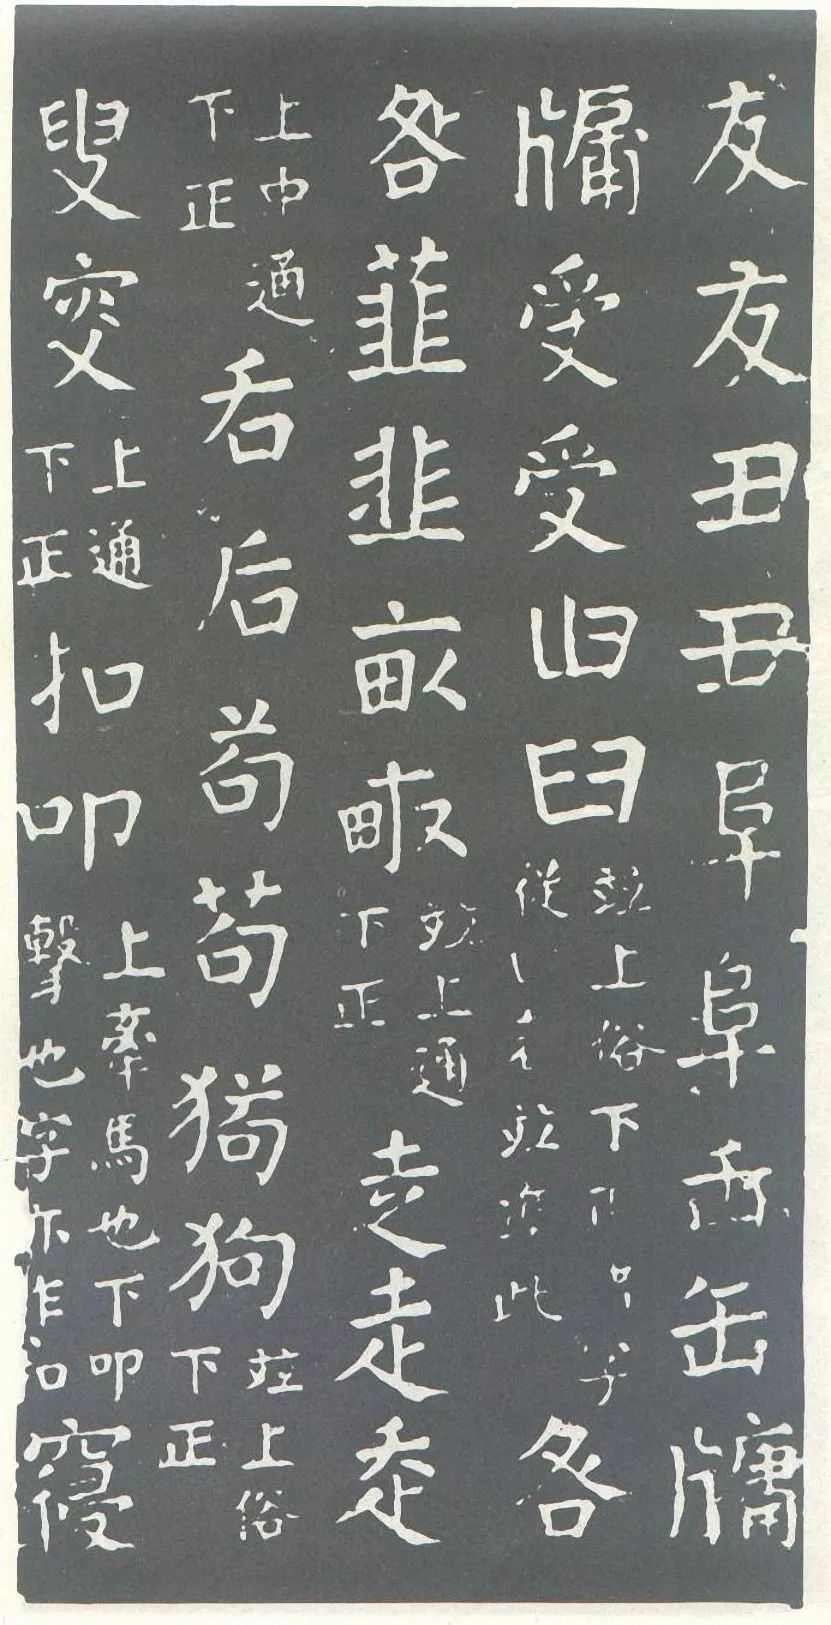 友友丑丑阜𨸏缶缶牗
牖受受臼臼並上俗下字從並准此咎
咎韮韭畝畞並上通下正走走赱
上中通下正后后茍苟猗狗並上俗下正
叟叜上通下正扣叩上牽馬也下叩擊也字亦作扣寑